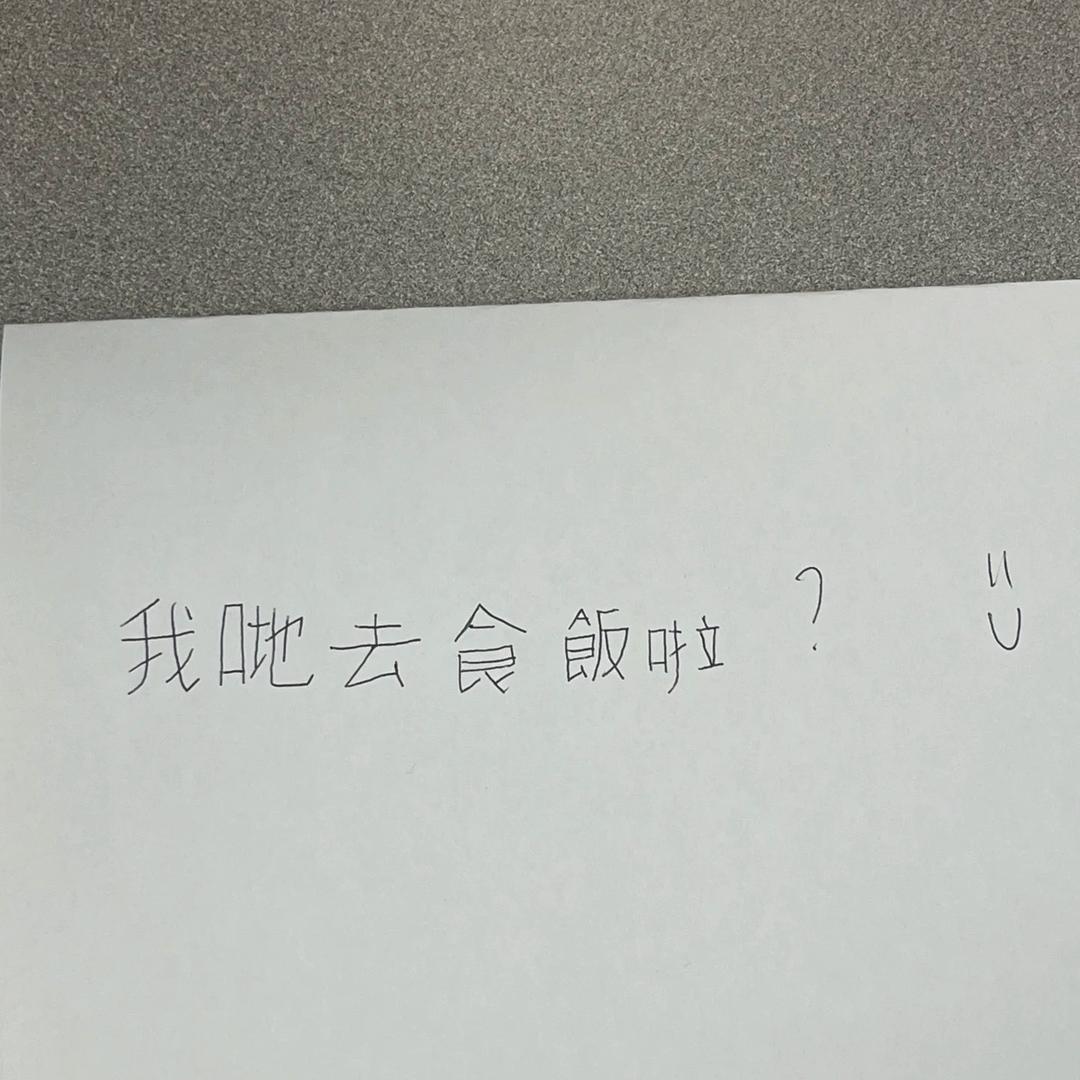 我哋去食飯啦? =)